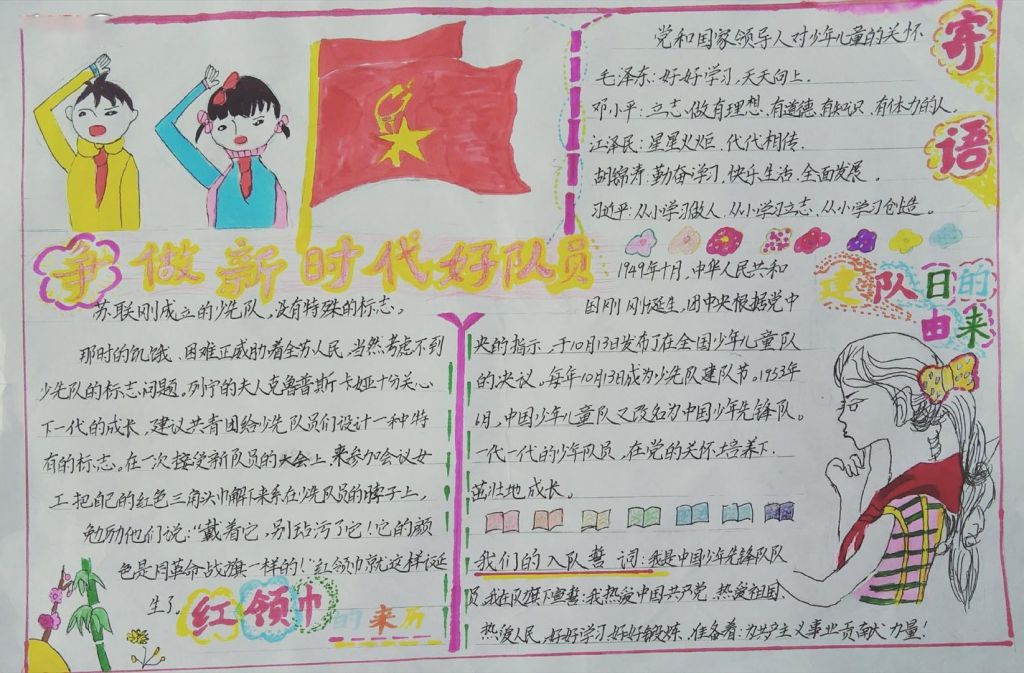 党和国家领导人对少年儿童的关怀
寄语
毛泽东:好好学习,天天向上.
邓小平:立志、做有理想、有道德、有知识、有体力的人.
江泽民:星星火炬、代代相传.
胡锦涛:勤奋学习、快乐生活、全面发展。
习近平:从小学习做人、从小学习立志、从小学习创造。
争做新时代好队员
苏联刚成立的少先队,没有特殊的标志。
那时的饥饿、困难正威胁着全苏人民,当然考虑不到
少先队的标志问题。列宁的夫人克鲁普斯卡娅十分关心
下一代的成长,建议共青团给少先队员们设计一种特
有的标志。在一次接受新队员的大会上,来参加会议女
工把自己的红色三角头巾解下来系在少先队员的脖子上,
勉励他们说:“戴着它,别玷污了它!它的颜
色是同革命战旗一样的!”红领巾就这样诞
生了。
红领巾的来历
建队日的
由来
1949年十月,中华人民共和
国刚刚诞生,团中央根据党中
央的指示,于10月13日发布了在全国少年儿童队
的决议。每年10月13日成为少先队建队节。1953年
6月,中国少年儿童队又改名为中国少年先锋队。
一代一代的少年队员,在党的关怀培养下.
茁壮地成长。
我们的入队誓词:我是中国少年先锋队队
员,我在队旗下宣誓:我热爱中国共产党、热爱祖国、
热爱人民,好好学习,好好锻炼、准备着:为共产主义事业贡献力量!